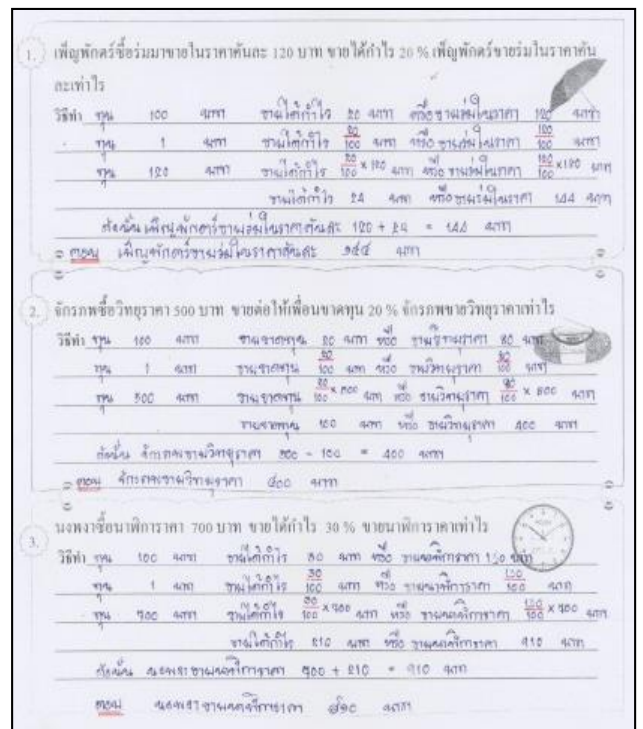 1. เพ็ญพักตร์ซื้อร่มมาขายในราคาคันละ 120 บาท ขายได้กำไร 20 % เพ็ญพักตร์ขายร่มในราคาคัน
ละเท่าไร
วิธีทำ ทุน 100 บาท ขายได้กำไร 20 บาท หรือขายร่มในราคา 120 บาท
ทุน 1 บาท ขายได้กำไร 20/100 บาท หรือขายร่มในราคา 120/100 บาท
ทุน 120 บาท ขายได้กำไร 20/100 × 120 บาท หรือขายร่มในราคา 120/100 × 120 บาท
ขายได้กำไร 24 บาท หรือขายร่มในราคา 144 บาท
ดังนั้น เพ็ญพักตร์ขายร่มในราคาคันละ 120 + 24 = 144 บาท
ตอบ เพ็ญพักตร์ขายร่มในราคาคันละ ๑๔๔ บาท
2. จักรภพซื้อวิทยุราคา 500 บาท ขายต่อให้เพื่อนขาดทุน 20 % จักรภพขายวิทยุราคาเท่าไร
วิธีทำ ทุน 100 บาท ขายขาดทุน 20 บาท หรือ ขายวิทยุราคา 80 บาท
ทุน 1 บาท ขายขาดทุน 20/100 บาท หรือ ขายวิทยุราคา 80/100 บาท
ทุน 500 บาท ขายขาดทุน 20/100 × 500 บาท หรือ ขายวิทยุราคา 80/100 × 500 บาท
ขายขาดทุน 100 บาท หรือ ขายวิทยุราคา 400 บาท
ดังนั้น จักรภพขายวิทยุราคา 500 - 100 = 400 บาท
ตอบ จักรภพขายวิทยุราคา ๔๐๐ บาท
3. นงพงาซื้อนาฬิการาคา 700 บาท ขายได้กำไร 30 % ขายนาฬิการาคาเท่าไร
วิธีทำ ทุน 100 บาท ขายได้กำไร 30 บาท หรือ ขายนาฬิการาคา 130 บาท
ทุน 1 บาท ขายได้กำไร 30/100 บาท หรือ ขายนาฬิการาคา 130/100 บาท
ทุน 700 บาท ขายได้กำไร 30/100 × 700 บาท หรือ ขายนาฬิการาคา 130/100 × 700 บาท
ขายได้กำไร 210 บาท หรือ ขายนาฬิการาคา 910 บาท
ดังนั้น นงพงาขายนาฬิการาคา 700 + 210 = 910 บาท
ตอบ นงพงาขายนาฬิการาคา ๙๑๐ บาท